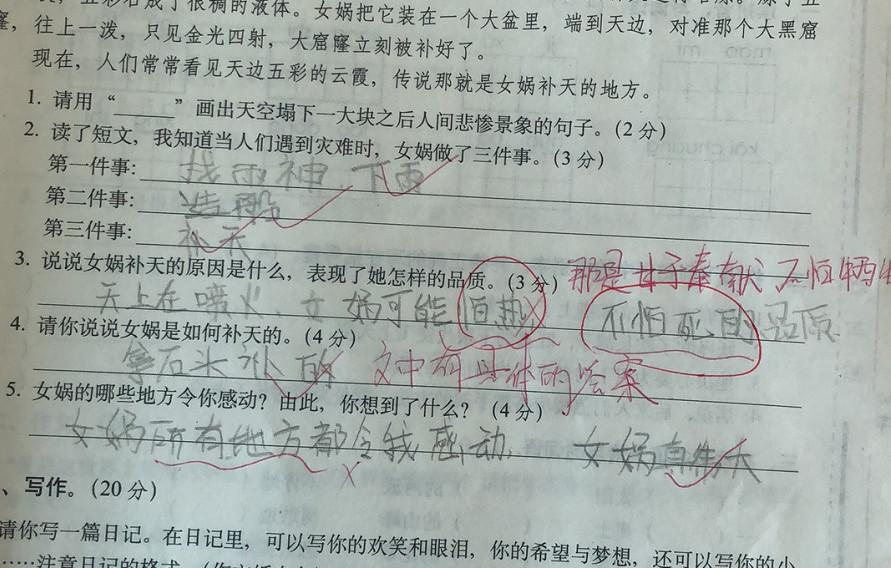 五彩石成了很稠的液体。女娲把它装在一个大盆里，端到天边，对准那个大黑窟
窿，往上一泼，只见金光四射，大窟窿立刻被补好了。
现在，人们常常看见天边五彩的云霞，传说那就是女娲补天的地方。
1. 请用“______”画出天空塌下一大块之后人间悲惨景象的句子。(2分)
2. 读了短文，我知道当人们遇到灾难时，女娲做了三件事。(3分)
第一件事: 找雨神 下雨
第二件事: 造船
第三件事: 补天
3. 说说女娲补天的原因是什么，表现了她怎样的品质。(3分) 那是甘于奉献 不怕牺牲
天上在喷火、女娲可能怕热 不怕死的品质
4. 请你说说女娲是如何补天的。(4分)
拿石头补的 文中有具体的答案
5. 女娲的哪些地方令你感动？由此，你想到了什么？(4分)
女娲所有地方都令我感动， 女娲真伟大
、写作。(20分)
请你写一篇日记。在日记里，可以写你的欢笑和眼泪，你的希望与梦想，还可以写你的小
……注意日记的格式。